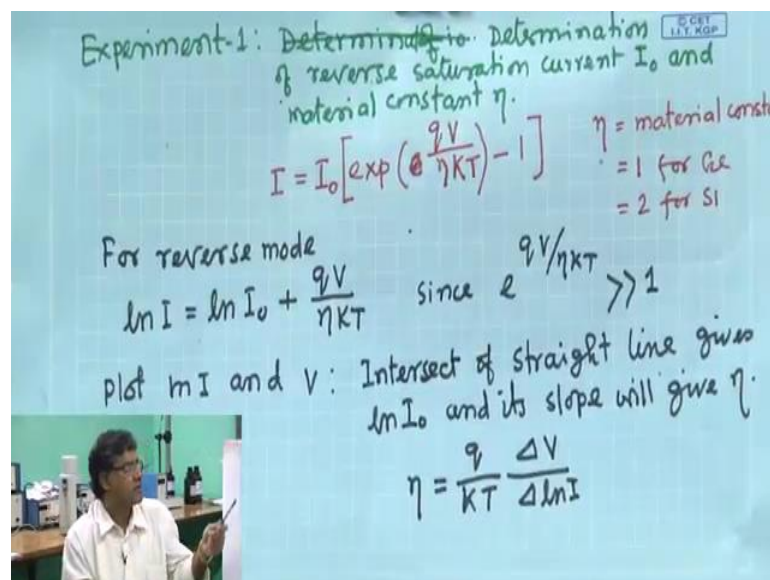 Experiment-1: Determination Determination
© CET
I.I.T. KGP
of reverse saturation current I₀ and
material constant η.
I = I₀[exp(qV/ηKT) - 1]
η = material consta
= 1 for Ge
= 2 for SI
For reverse mode
ln I = ln I₀ + qV/ηKT since e^(qV/ηKT) >> 1
plot mI and V: Intersect of straight line gives
ln I₀ and its slope will give η.
η = q/KT ΔV/ΔlnI